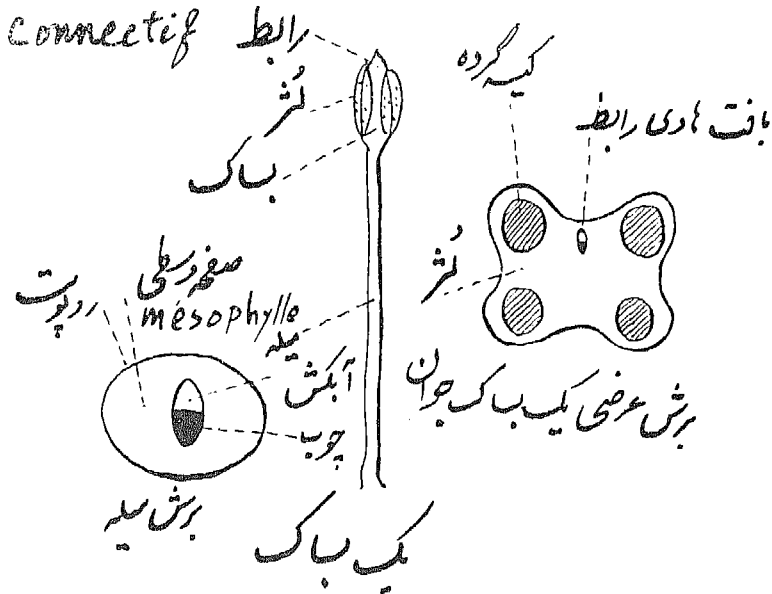 connectif رابط
کیسه گرده
بافت هادی رابط
لُژ
بساک
لُژ
صفحه وسطی
mésophylle
روپوست
میله
آبکش
چوب
برش عرضی یک بساک جوان
برش میله
یک بساک